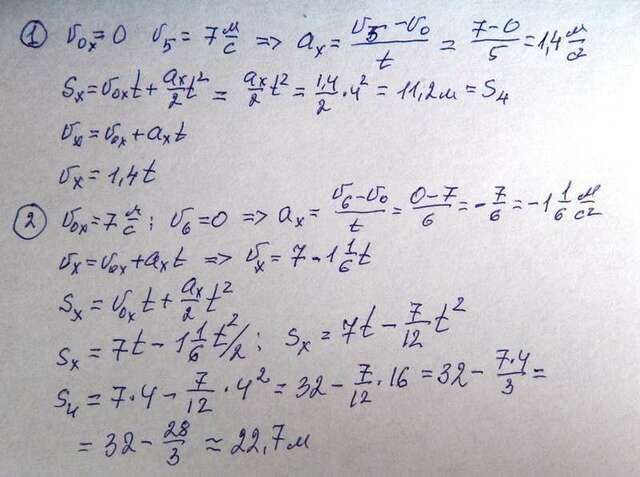 ① v₀ₓ=0 v₅=7 м/с => aₓ = (v₅-v₀)/t = (7-0)/5 = 1,4 м/с²
Sₓ=v₀ₓt+aₓ/2 t² = aₓ/2 t² = 1,4/2 · 4² = 11,2м = S₄
vₓ=v₀ₓ+aₓt
vₓ=1,4t
② v₀ₓ=7 м/с; v₆=0 => aₓ = (v₆-v₀)/t = (0-7)/6 = -7/6 = -1 1/6 м/с²
vₓ=v₀ₓ+aₓt => vₓ=7-1 1/6 t
Sₓ=v₀ₓt+aₓ/2 t²
Sₓ=7t-1 1/6 t²/2; Sₓ=7t-7/12 t²
S₄=7·4-7/12·4²=32-7/12·16=32-7·4/3=
=32-28/3≈22,7м